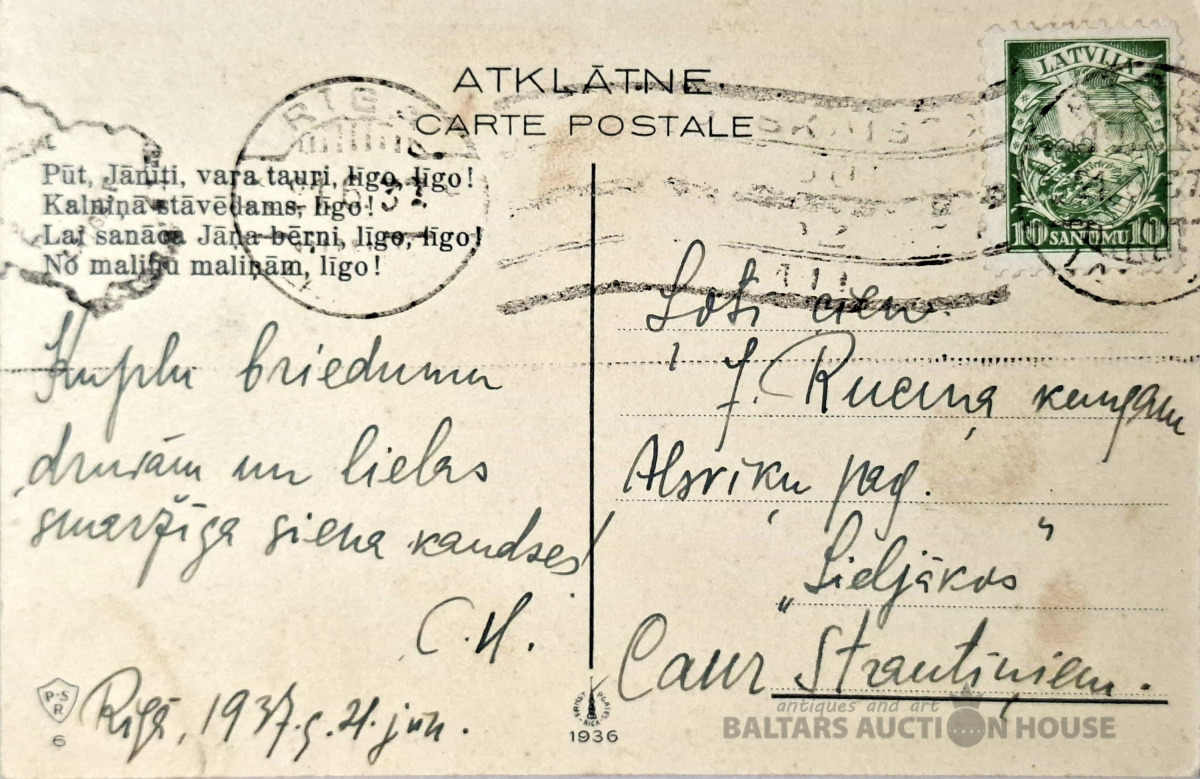 ATKLĀTNE.
CARTE POSTALE
LATVIJA
10 SANTĪMU 10
RĪGA
Pūt, Jānīti, vara tauri, līgo, līgo!
Kalniņā stāvēdams, līgo!
Lai sanāca Jāņa bērni, līgo, līgo!
No maliņu maliņām, līgo!
Kuplu briedumu
druvām un lielas
smaržīga siena kaudzes!
C. H.
Rīgā, 1937. g. 21. jūn.
Ļoti cien.
J. Ruciņa kungam
Alsviķu pag.
„Lieljākos"
Caur Strautiņiem.
P.S.R
6
1936
antiques and art
BALTARS AUCTION HOUSE